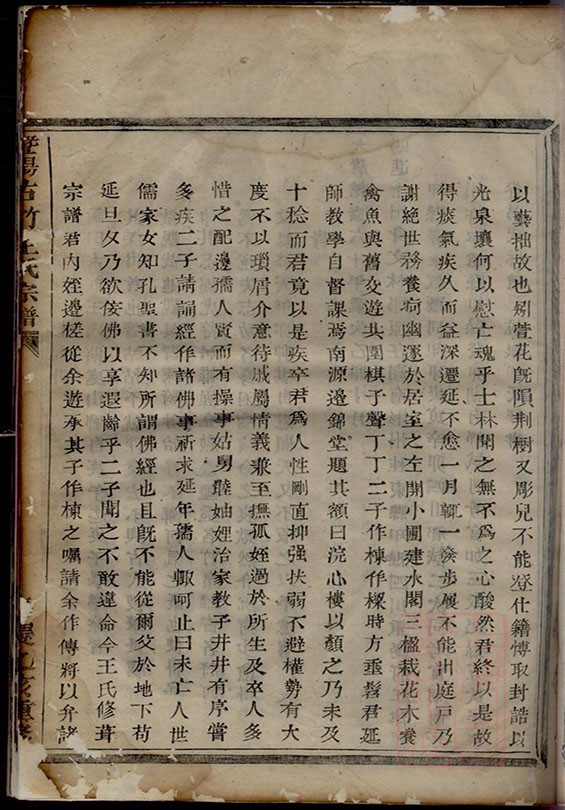 以藝拙故也矧萱花旣隕荆樹又彫兒不能登仕籍慱取封誥以
光泉壤何以慰亡魂乎士林聞之無不爲之心酸然君終以是故
得痰氣疾久而益深遷延不愈一月輒一發步履不能出庭戸乃
謝絶世務養疴幽邃於居室之左開小圃建水閣三楹栽花木養
禽魚與舊交遊共圍棋子聲丁丁二子作棟作樑時方垂髫君延
師教學自督課焉南源邉錦堂題其額曰浣心樓以顏之乃未及
十稔而君竟以是疾卒君爲人性剛直抑强扶弱不避權勢有大
度不以瑣屑介意待戚屬情義兼至撫孤姪過於所生及卒人多
惜之配邉孺人賢而有操事姑舅睦妯娌治家教子井井有序嘗
多疾二子請誦經作諸佛事祈求延年孺人輙呵止曰未亡人世
儒家女知孔聖書不知所謂佛經也且旣不能從爾父於地下苟
延旦夕乃欲佞佛以享遐齡乎二子聞之不敢違命今王氏修葺
宗譜君内姪邉槎從余遊承其子作棟之囑請余作傳將以弁諸
古竹王氏宗譜
重